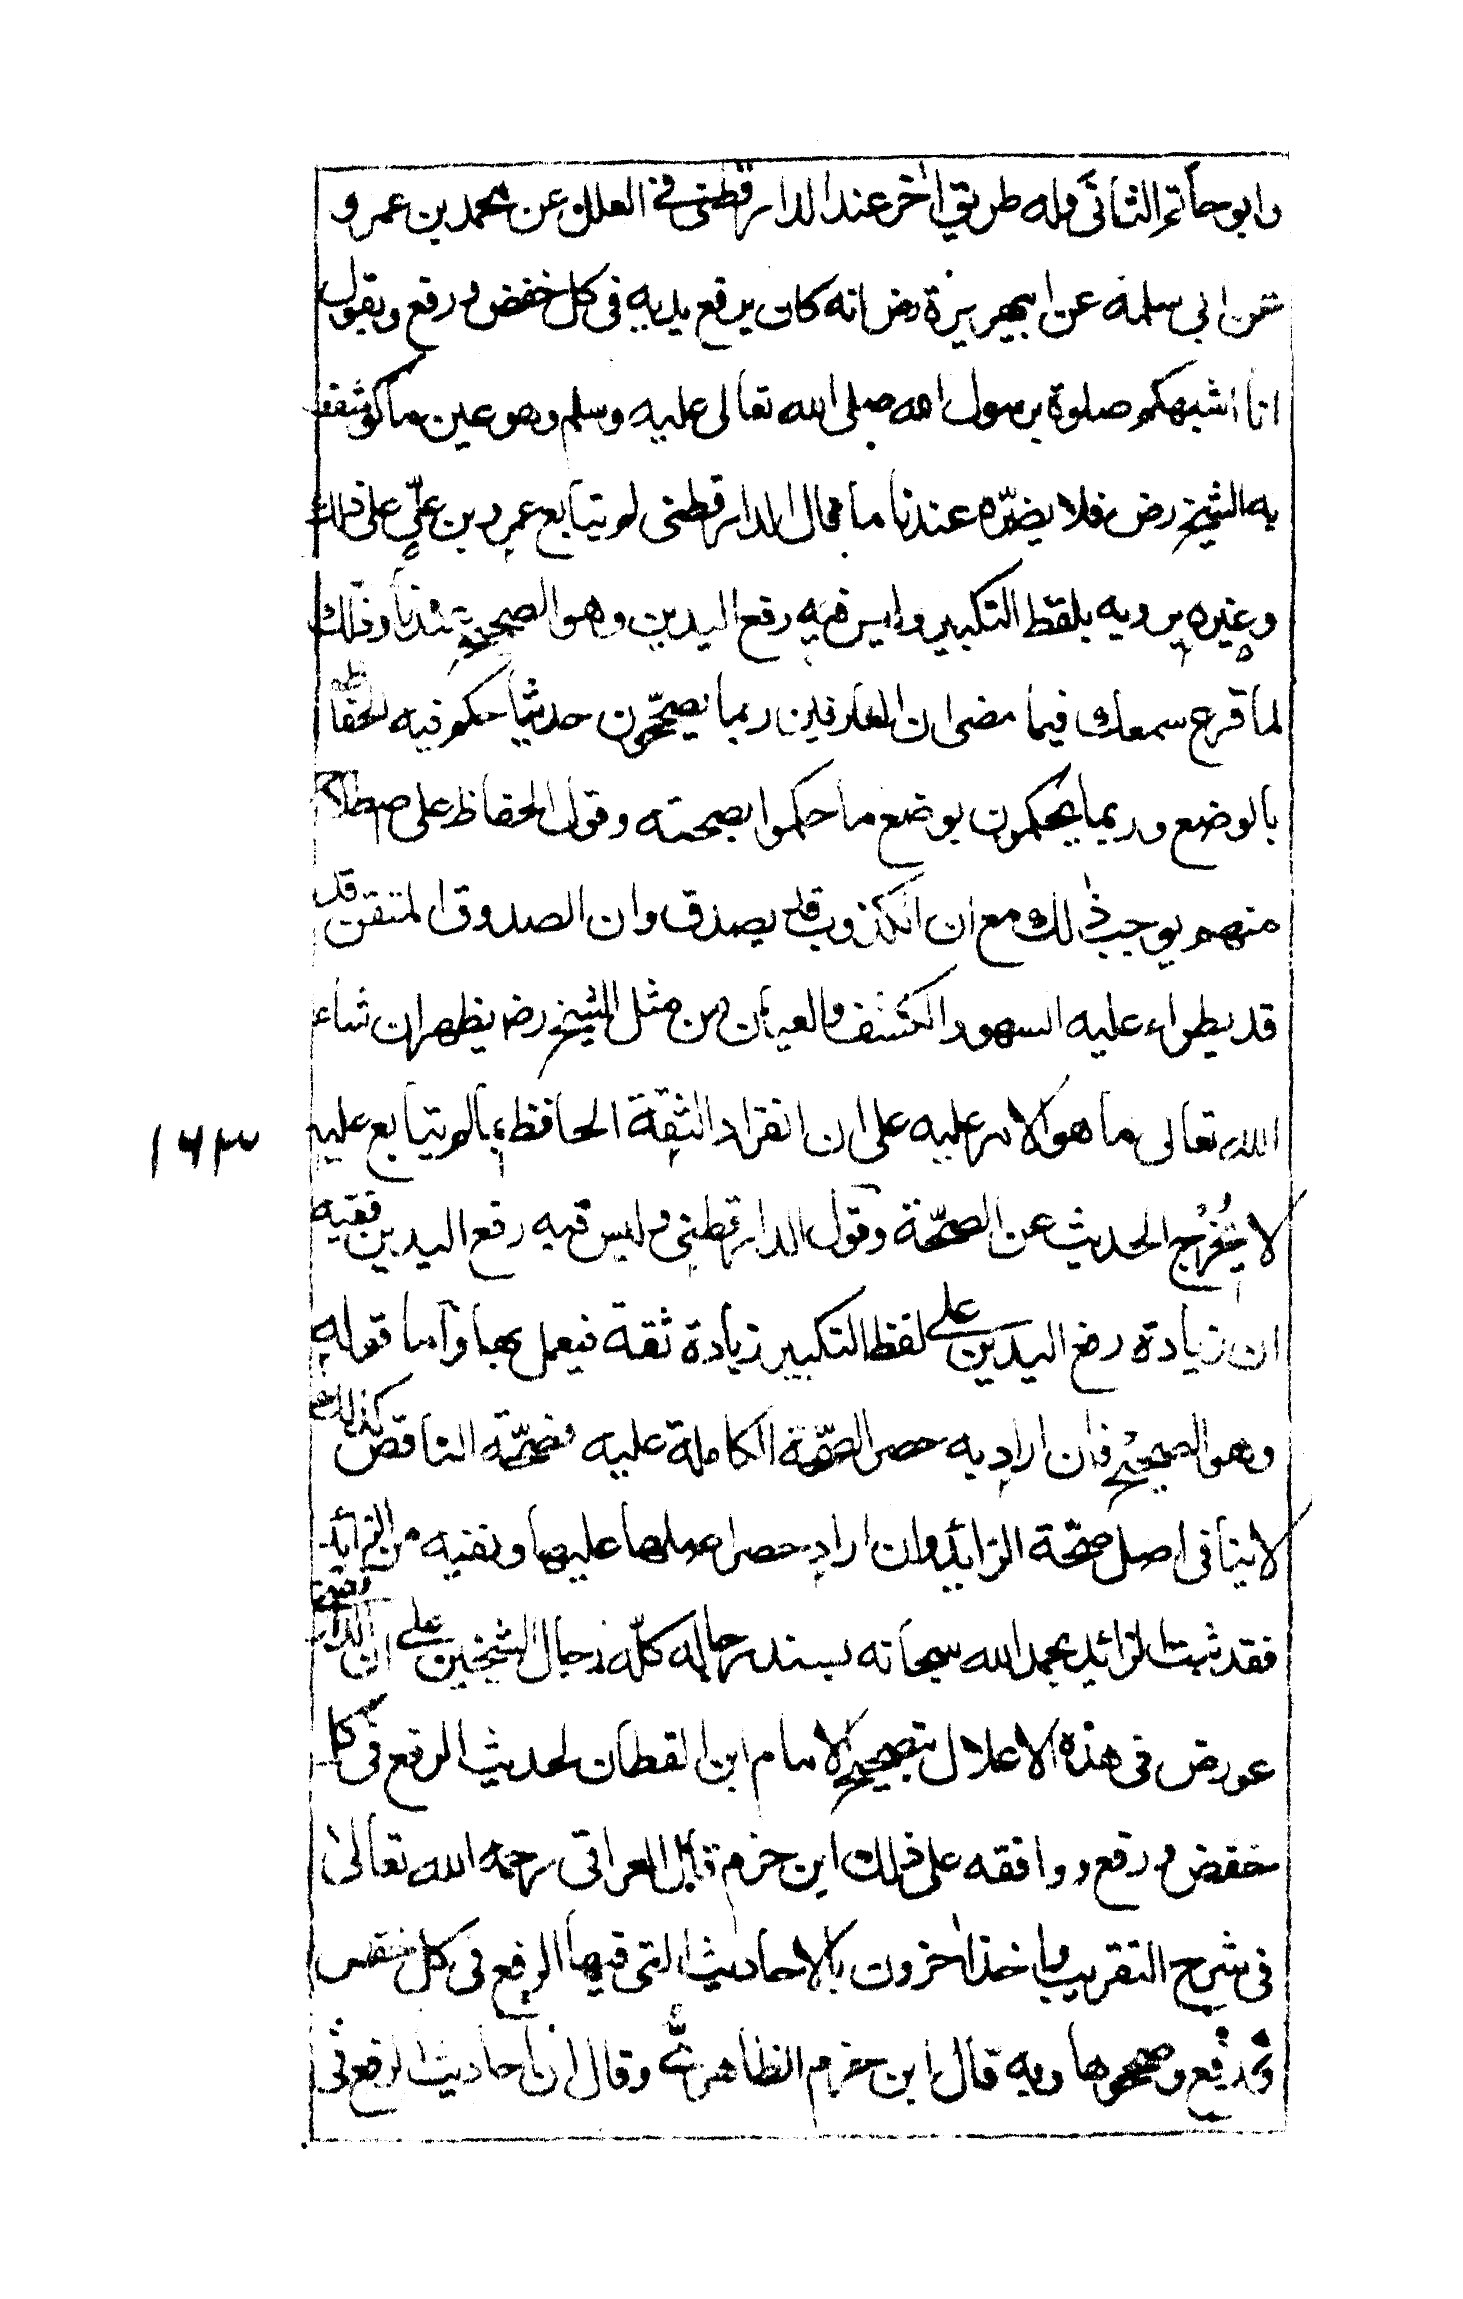 وابو حاتم الثاني وله طريق اٰخر عند الدارقطني في العلل عن محمد بن عمرو
عن ابي سلمة عن ابيهريرة رض انه كان يرفع يديه في كل خفض ورفع ويقول
انا اشبهكم صلوة برسول الله صلى الله تعالى عليه وسلم وهو عين ما كوشف
به الشيخ رض فلا يضرّه عندنا ما قال الدارقطني لم يتابع عمرو بن عليّ على ذلك
وغيره يرويه بلفظ التكبير وليس فيه رفع اليدين وهو الصحيح عندنا وذلك
لما قرع سمعك فيما مضى ان العارفين ربما يصحّحون حديثا حكم فيه الحفاظ
بالوضع وربما يحكمون بوضع ما حكموا بصحته وقول الحفاظ على صطلاح
منهم يوجب ذٰلك مع ان الكذوب قد يصدق وان الصدوق المتقن قد
قد يطراء عليه السهو والكشف والعيان من مثل الشيخ رض يظهر ان شاء
الله تعالى ما هو الامر عليه على ان انفراد الثقة الحافظ بما لم يتابع عليه
لا يُخْرُج الحديث عن الصحّة وقول الدارقطني وليس فيه رفع اليدين ففيه
ان زيادة رفع اليدين على لفظ التكبير زيادة ثقة فيعمل بها وآما قوله
وهو الصحيح فان اراد به حصر الصّحة الكاملة عليه فصحّة الناقص كذلك
لا ينافي اصل صحّة الزائد وان اراد حصر اصلها عليها ونفيه من الزائد
فقد ثبت الزائد بحمد الله سبحانه بسند رجاله كلّه رجال الشيخين على ان الدارقطني
عورض في هذه الاعلال بتصحيح الامام ابن القطان لحديث الرفع في كل
خفض ورفع ووافقه على ذلك ابن حزم قال العراقي رحمه الله تعالىٰ
في شرح التقريب واخذ اٰخرون بالاحاديث التي فيها الرفع في كل خفض
ورفع وصححوها وبه قال ابن حزم الظاهريّ وقال ان احاديث الرفع في
١٦٣